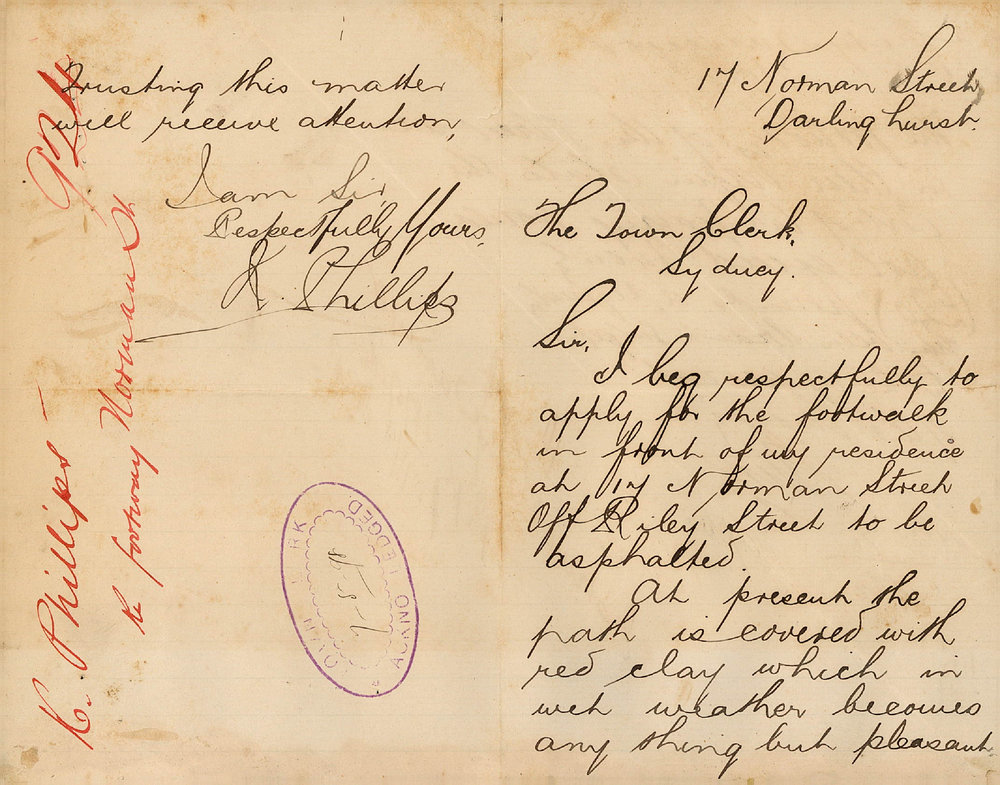 17 Norman Street
Darlinghurst.
The Town Clerk,
Sydney.
Sir,
I beg respectfully to
apply for the footwalk
in front of my residence
at 17 Norman Street
Off Riley Street to be
asphalted.
At present the
path is covered with
red clay which in
wet weather becomes
any thing but pleasant.
Trusting this matter
will receive attention,
I am Sir,
Respectfully Yours,
K. Phillips
K. Phillips —
re footway Norman St
ACKNOWLEDGED